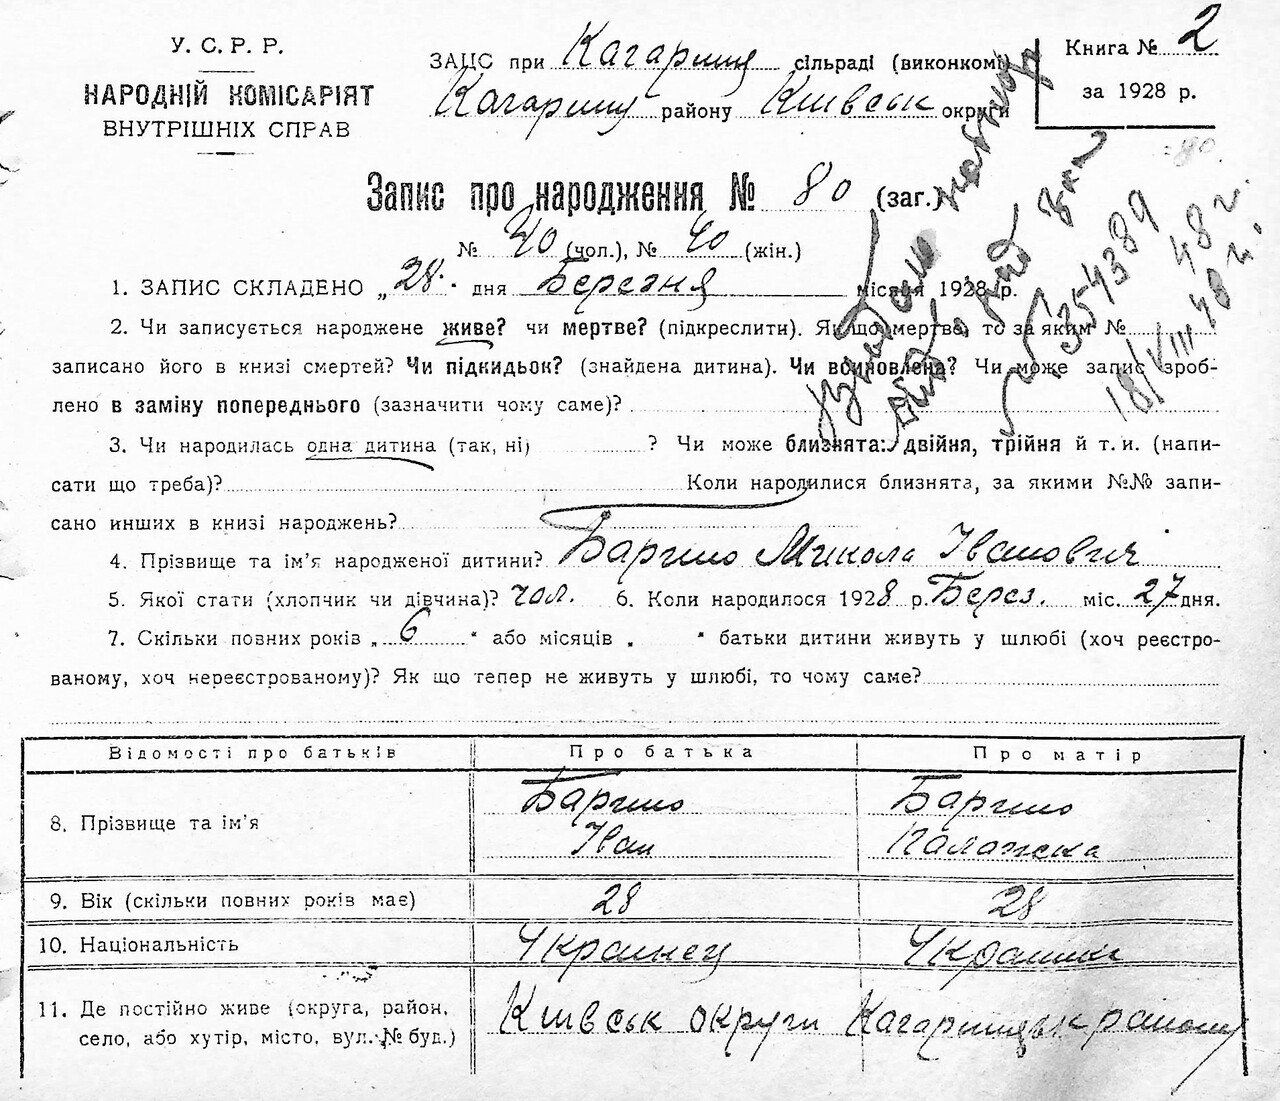 У. С. Р. Р.
НАРОДНІЙ КОМІСАРІЯТ
ВНУТРІШНІХ СПРАВ
ЗАЦС при Кагарлик сільраді (виконкомі
району Київськ округи
Книга № 2
за 1928 р.
80
Запис про народження № 80 (заг.)
№ 40 (чол.), № 40 (жін.)
1. ЗАПИС СКЛАДЕНО „ 28 " дня Березня місяця 1928 р.
2. Чи записується народжене живе? чи мертве? (підкреслити). Як що мертве, то за яким №
записано його в книзі смертей? Чи підкидьок? (знайдена дитина). Чи всиновлена? Чи може запис зроб-
лено в заміну попереднього (зазначити чому саме)?
354389
48 г.
18/VIII 48 г.
3. Чи народилась одна дитина (так, ні) ? Чи може близнята: двійня, трійня й т. и. (напи-
сати що треба)? Коли народилися близнята, за якими №№ запи-
сано инших в книзі народжень?
4. Прізвище та ім'я народженої дитини? Баргило Микола Іванович
5. Якої стати (хлопчик чи дівчина)? чол. 6. Коли народилося 1928 р. Берез. міс. 27 дня.
7. Скільки повних років „ 6 " або місяців „ " батьки дитини живуть у шлюбі (хоч реєстро-
ваному, хоч нереєстрованому)? Як що тепер не живуть у шлюбі, то чому саме?
Відомості про батьків Про батька Про матір
8. Прізвище та ім'я Баргило Іван Баргило Палажка
9. Вік (скільки повних років має) 28 28
10. Національність Українец Українка
11. Де постійно живе (округа, район, село, або хутір, місто, вул. № буд.) Київськ округи Кагарлицьк району